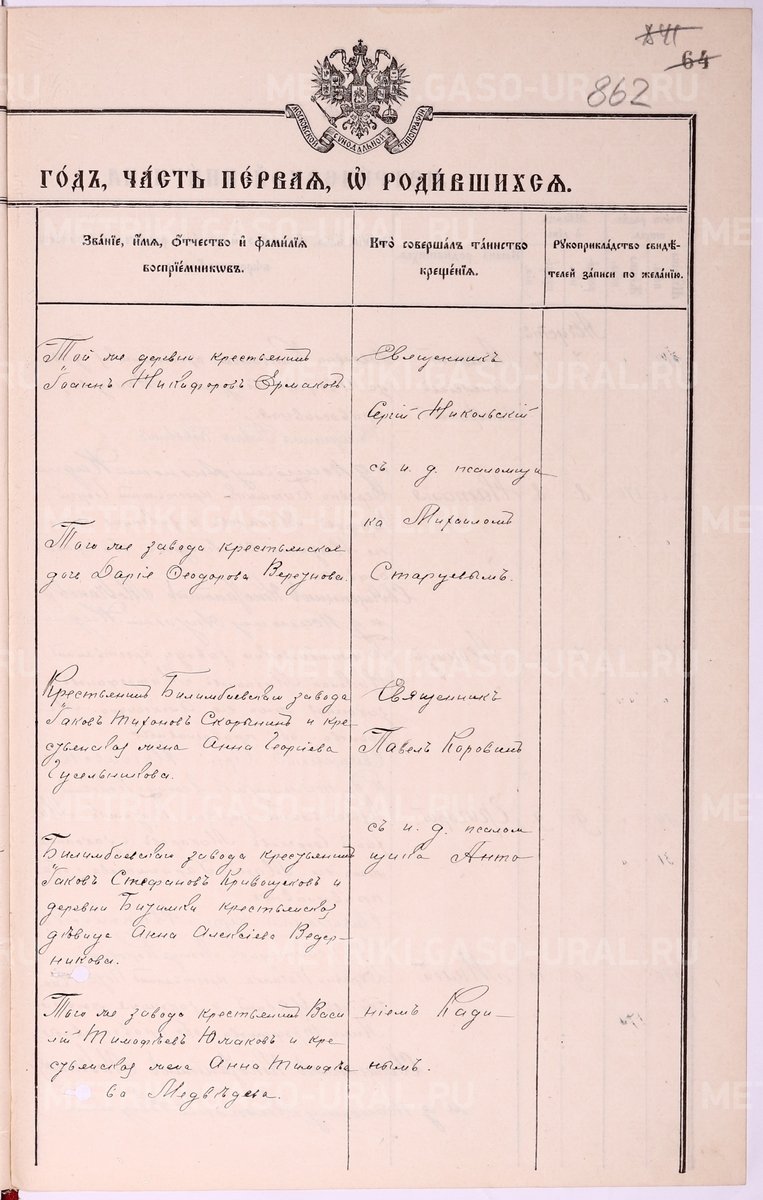 64
862
МОСКОВСКОЙ СѴНОДАЛЬНОЙ ТИПОГРАФІИ
METRIKI.GASO-URAL.RU
ГО́ДЪ, ЧА́СТЬ ПЕ́РВАЯ, Ѡ҆ РОДИ́ВШИХСЯ.
Зва́нїе, и҆́мя, ѻ҆́тчество и҆ фами́лїя
воспрїе́мникѡвъ.
Кто̀ соверша́лъ та́инство
креще́нїя.
Рꙋкоприкла́дство свидѣ́-
телей за́писи по жела́нїю.
Той же деревни крестьянинъ
Іоаннъ Никифоровъ Ермаковъ
Священникъ
Сергій Никольскій
съ и. д. псаломщи
ка Михаиломъ
Старцевымъ.
Того же завода крестьянская
дочь Дарія Ѳеодорова
Крестьянинъ Билимбаевскаго завода
Іаковъ Тихоновъ Скорынинъ и кре
стьянская жена Анна Георгіева
Гусельникова.
Священникъ
Павелъ Коровинъ
съ и. д. псалом
щика Анто
Билимбаевскаго завода крестьянинъ
Іаковъ Стефановъ Кривощековъ и
деревни Бизимки крестьянская
дѣвица Анна Алексіева Ведер-
никова.
Того же завода крестьянинъ Васи
лій Тимофѣевъ Юмаковъ и кре
стьянская жена Анна Тимофѣе
ва Медвѣдева.
ніемъ Кади-
нымъ.